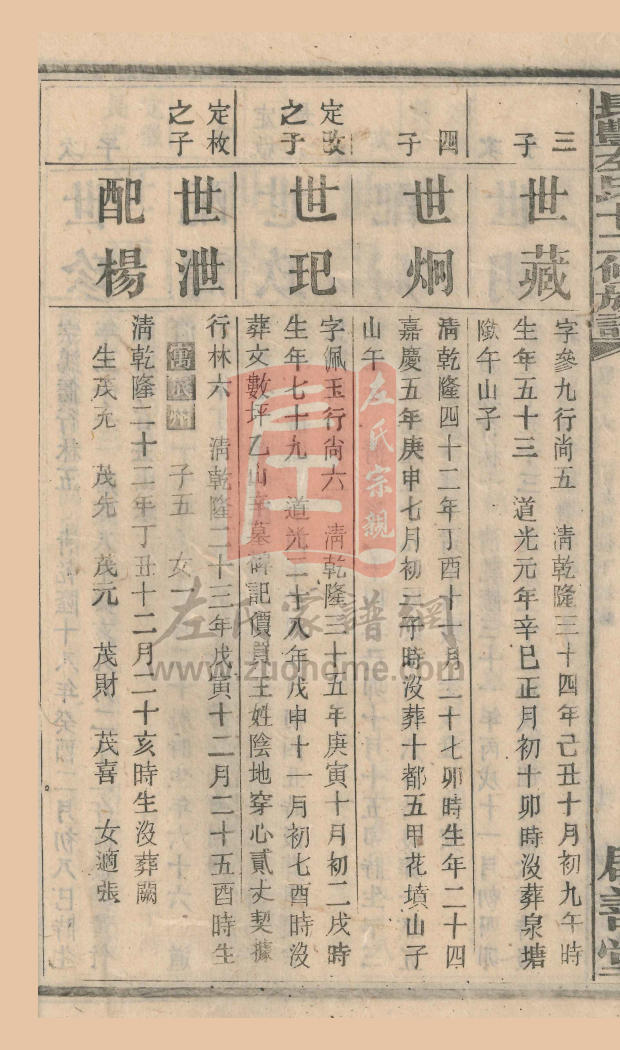 長豐左氏十二修族譜
居善堂
三子
世藏
字參九行尚五 清乾隆三十四年己丑十月初九午時
生年五十三 道光元年辛巳正月初十卯時沒葬泉塘
午山子
四子
世炯
清乾隆四十二年丁酉十一月二十七卯時生年二十四
嘉慶五年庚申七月初三子時沒葬十都五甲花墳山子
山午
定改之子
世玘
字佩玉行尚六 清乾隆三十五年庚寅十月初二戌時
生年七十九 道光二十八年戊申十一月初七酉時沒
葬文數坪乙山辛墓碑記價買王姓陰地穿心貳丈契據
定枚之子
世泄
行林六 清乾隆二十三年戊寅十二月二十五酉時生
寓辰州 子五 女一
配楊
清乾隆二十二年丁丑十二月二十亥時生沒葬闕
生茂允 茂先 茂元 茂財 茂喜 女適張
左氏宗親
左氏家譜網
www.zuohome.com